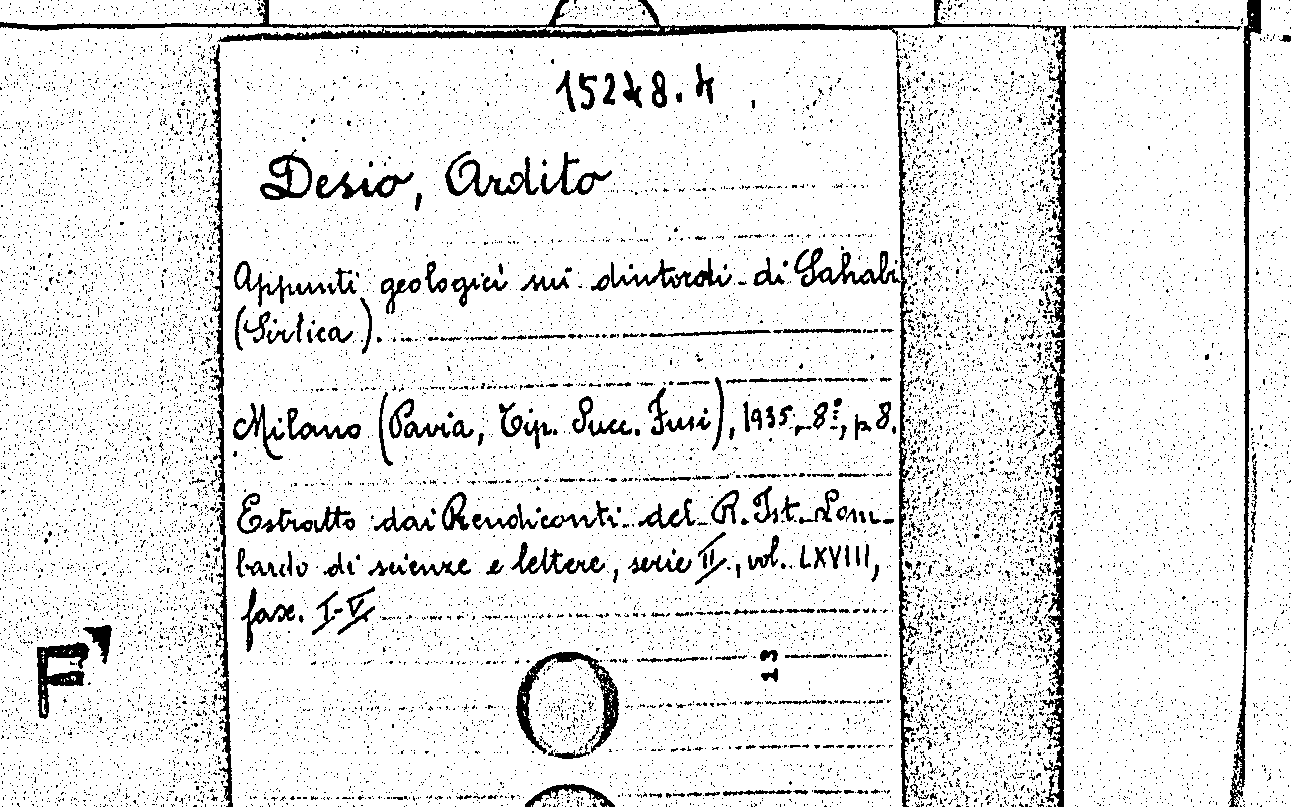 15248.4
Desio, Ardito
Appunti geologici sui dintordi di Sahabi
(Sirtica).
Milano (Pavia, Tip. Succ. Fusi), 1935, 8º, p 8.
Estratto dai Rendiconti del R. Ist. Lom-
bardo di scienze e lettere, serie II, vol. LXVIII,
fasc. I-V
13
F